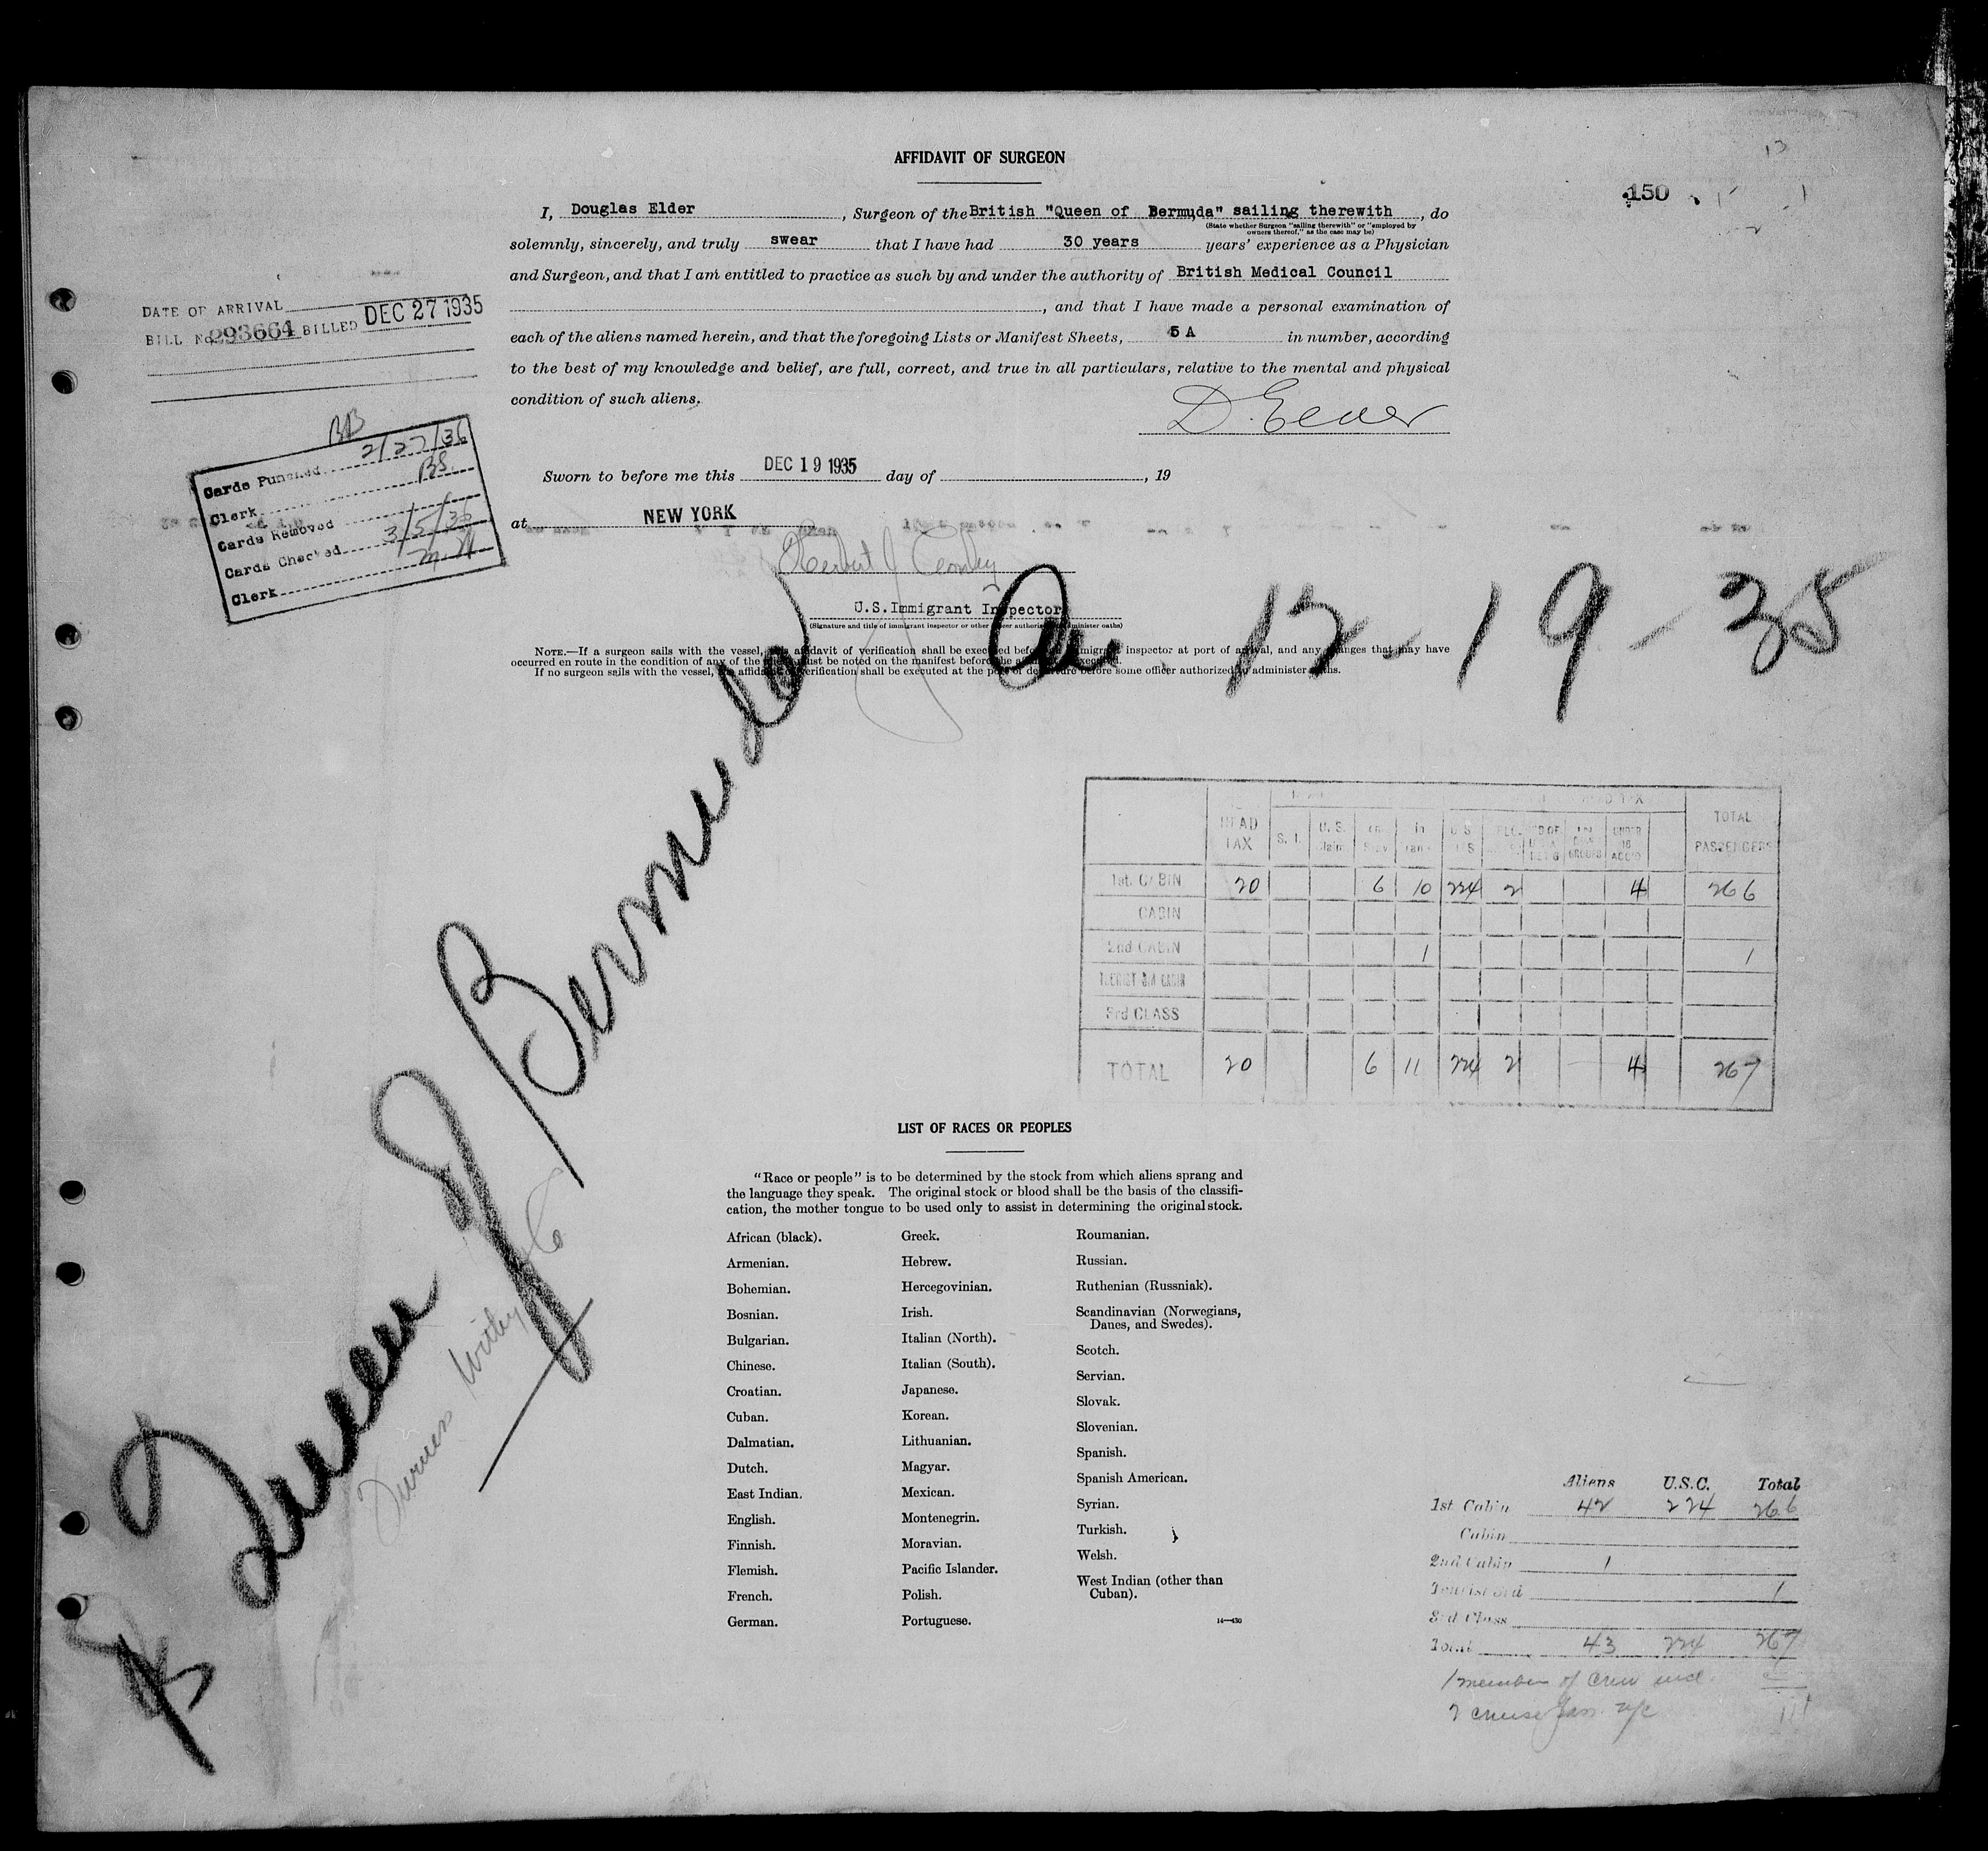 AFFIDAVIT OF SURGEON
150
13
I, Douglas Elder, Surgeon of the British "Queen of Bermuda" sailing therewith, do
(State whether Surgeon "sailing therewith" or "employed by
owners thereof," as the case may be)
solemnly, sincerely, and truly swear that I have had 30 years years' experience as a Physician
and Surgeon, and that I am entitled to practice as such by and under the authority of British Medical Council
, and that I have made a personal examination of
each of the aliens named herein, and that the foregoing Lists or Manifest Sheets, 5 A in number, according
to the best of my knowledge and belief, are full, correct, and true in all particulars, relative to the mental and physical
condition of such aliens.
D. Elder
DATE OF ARRIVAL
BILL No. 293664 BILLED DEC 27 1935
BB
Cards Punched 2/27/36
Clerk BS
Cards Removed
Cards Checked 3/5/36
Clerk
Sworn to before me this DEC 19 1935 day of , 19
at NEW YORK
U.S. Immigrant Inspector
(Signature and title of immigrant inspector or other officer authorized to administer oaths)
NOTE.—If a surgeon sails with the vessel, affidavit of verification shall be executed before immigrant inspector at port of arrival, and any changes that may have
occurred en route in the condition of any of the must be noted on the manifest before the executed.
If no surgeon sails with the vessel, affidavit of verification shall be executed at the port of departure before some officer authorized to administer oaths.
12-19-35
Queen of Bermuda
Furness Withy Co
HEAD TAX S. I. U. S. UNDER 16 TOTAL PASSENGERS
1st. CABIN 20 6 10 224 2 4 266
CABIN
2nd CABIN 1 1
TOURIST 3rd CABIN
3rd CLASS
TOTAL 20 6 11 224 2 4 267
LIST OF RACES OR PEOPLES
"Race or people" is to be determined by the stock from which aliens sprang and
the language they speak. The original stock or blood shall be the basis of the classifi-
cation, the mother tongue to be used only to assist in determining the original stock.
African (black).
Armenian.
Bohemian.
Bosnian.
Bulgarian.
Chinese.
Croatian.
Cuban.
Dalmatian.
Dutch.
East Indian.
English.
Finnish.
Flemish.
French.
German.
Greek.
Hebrew.
Hercegovinian.
Irish.
Italian (North).
Italian (South).
Japanese.
Korean.
Lithuanian.
Magyar.
Mexican.
Montenegrin.
Moravian.
Pacific Islander.
Polish.
Portuguese.
Roumanian.
Russian.
Ruthenian (Russniak).
Scandinavian (Norwegians,
Danes, and Swedes).
Scotch.
Servian.
Slovak.
Slovenian.
Spanish.
Spanish American.
Syrian.
Turkish.
Welsh.
West Indian (other than
Cuban).
14—430
Aliens U.S.C. Total
1st Cabin 42 224 266
Cabin
2nd Cabin 1
Tourist 3rd 1
3rd Class
Total 43 224 267
1 member of crew incl.
2 cruise pass.